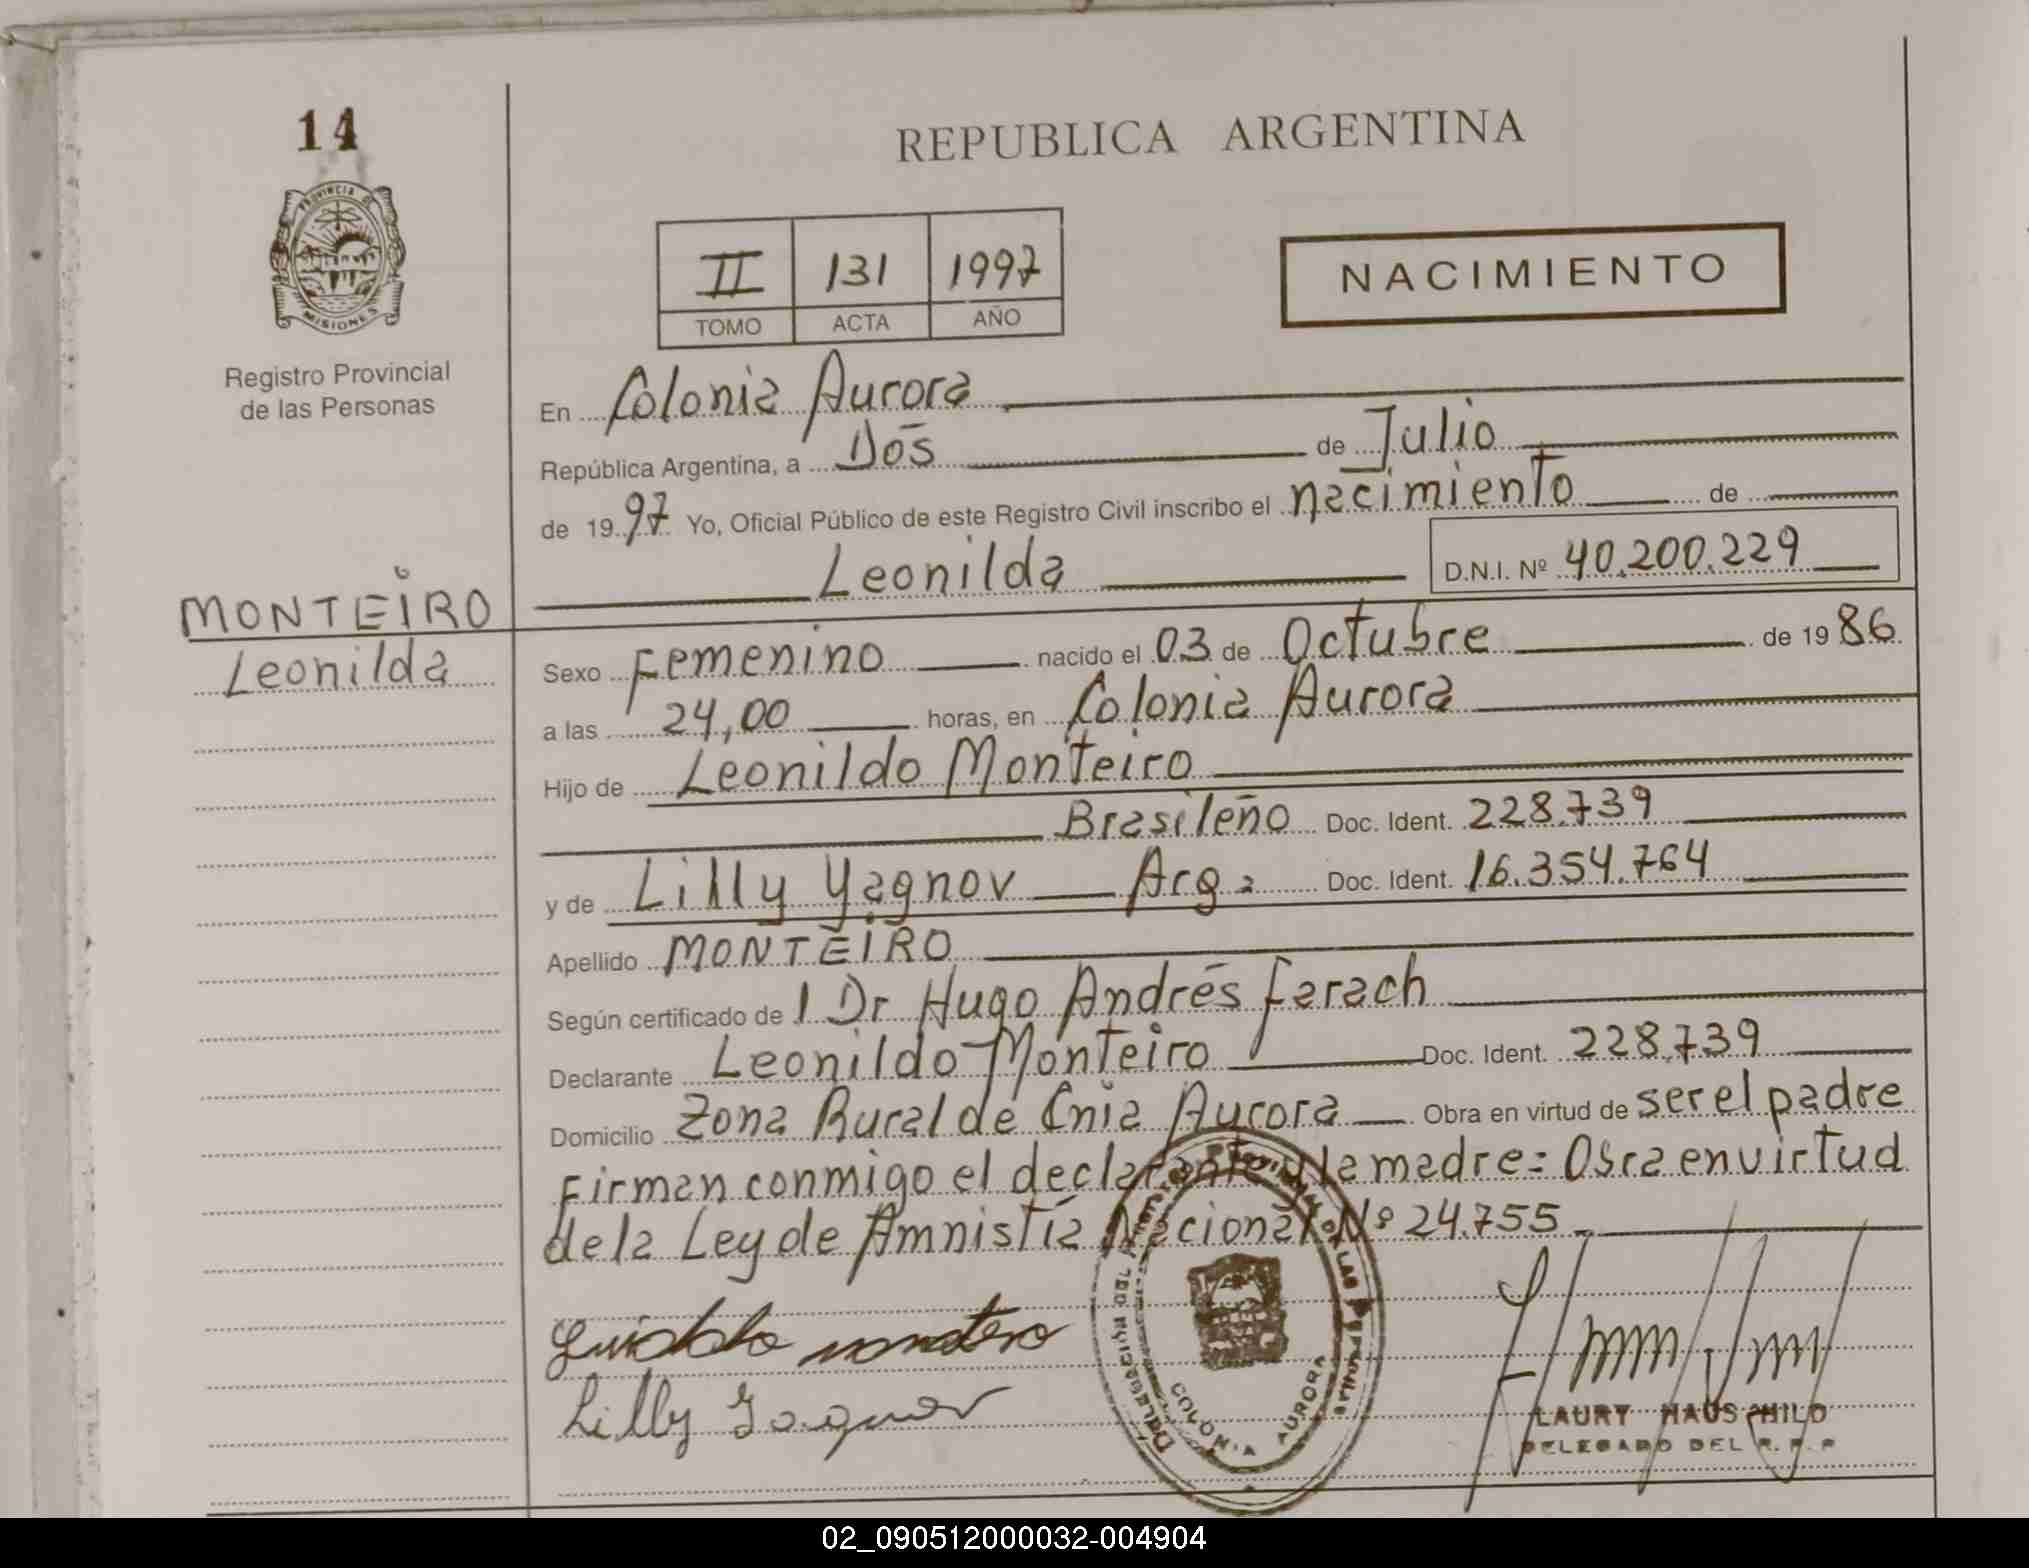 14
PROVINCIA DE
MISIONES
Registro Provincial
de las Personas
MONTEIRO
Leonilda
REPUBLICA ARGENTINA
II 131 1997
TOMO ACTA AÑO
NACIMIENTO
En Colonia Aurora
República Argentina, a Dos de Julio
de 1997 Yo, Oficial Público de este Registro Civil inscribo el nacimiento de
Leonilda D.N.I. Nº 40.200.229
Sexo Femenino nacido el 03 de Octubre de 1986
a las 24,00 horas, en Colonia Aurora
Hijo de Leonildo Monteiro
Brasileño Doc. Ident. 228.739
y de Lilly Yagnov Arg. Doc. Ident. 16.354.764
Apellido MONTEIRO
Según certificado del Dr Hugo Andrés Farach
Declarante Leonildo Monteiro Doc. Ident. 228.739
Domicilio Zona Rural de Cnia Aurora Obra en virtud de ser el padre
Firman conmigo el declarante y la madre = Obra en virtud
de la Ley de Amnistía Nacional Nº 24.755
Lilly Yagnov
COLONIA AURORA
LAURY HAUSCHILD
DELEGADO DEL R. P. P
02_090512000032-004904